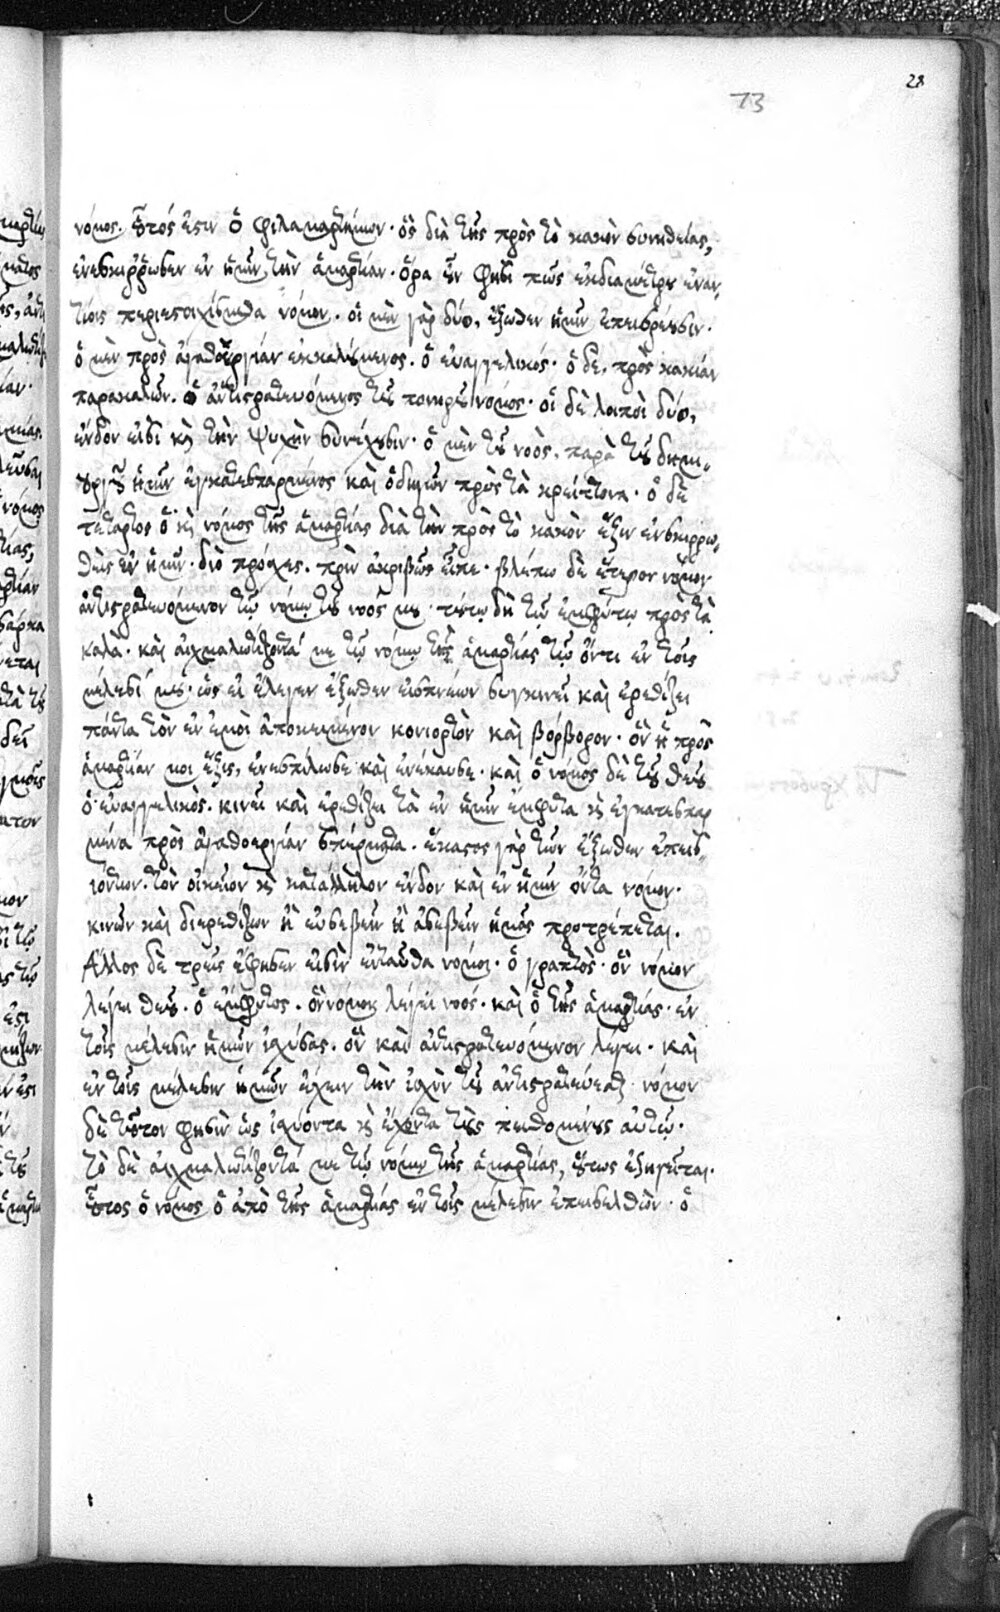 28
73
νόμος. οὗτός ἐστιν ὁ φιλαμαρτήμων· ὃς διὰ τῆς πρὸς τὸ κακὸν συνηθείας,
ἐνεσκιρρωσεν ἐν ἡμῖν τὴν ἁμαρτίαν. ὅρα οὖν φησὶ πῶς ἐκδιαμέτρου ἐναν
τίοις περιεστοιχίσμεθα νόμοις. οἱ μὲν γὰρ δύο, ἔξωθεν ἡμῖν ἐπεισρέουσιν·
ὁ μὲν πρὸς ἀγαθοεργίαν ἐκκαλούμενος. ὁ εὐαγγελικός· ὁ δὲ, πρὸς κακίαν
παρακαλῶν. ὁ ἀντιστρατευόμενος τοῦ πονηροῦ νόμος· οἱ δὲ λοιποὶ δύο,
ἔνδον εἰσὶ καὶ τὴν ψυχὴν συνέχουσιν· ὁ μὲν τοῦ νοὸς, παρὰ τοῦ δημι
ουργοῦ ἡμῖν ἐγκατεσπαρμένος καὶ ὁδηγῶν πρὸς τὰ κρείττονα· ὁ δὲ
τέταρτος ὁ καὶ νόμος τῆς ἁμαρτίας διὰ τὴν πρὸς τὸ κακὸν ἕξιν ἐνσκιρρω
θεὶς ἐν ἡμῖν· διὸ πρόσχες. πρὶν ἀκριβῶς εἶπε· βλέπω δὲ ἕτερον νόμον
ἀντιστρατευόμενον τῷ νόμῳ τοῦ νοός μου· τούτῳ δὴ τῷ ἐμφύτῳ πρὸς τὰ
καλὰ· καὶ αἰχμαλωτίζοντά με τῷ νόμῳ τῆς ἁμαρτίας τῷ ὄντι ἐν τοῖς
μέλεσί μου· ὡς εἰ ἔλεγεν ἔξωθεν εἰσπνέων συγκινεῖ καὶ ἐρεθίζει
πάντα τὸν ἐν ἐμοὶ ἀποκείμενον κονιορτὸν καὶ βόρβορον· ὃν ἡ πρὸς
ἁμαρτίαν μοι ἕξις, ἐνεσπίλωσε καὶ ἐνέκαυσε· καὶ ὁ νόμος δὲ τοῦ θεοῦ
ὁ εὐαγγελικὸς· κινεῖ καὶ ἐρεθίζει τὰ ἐν ἡμῖν ἔμφυτα καὶ ἐγκατεσπαρ
μένα πρὸς ἀγαθοεργίαν σπέρματα. ἕκαστος γὰρ τῶν ἔξωθεν ἐπεισ
ιόντων· τὸν οἰκεῖον καὶ κατάλληλον ἔνδον καὶ ἐν ἡμῖν ὄντα νόμον·
κινῶν καὶ διερεθίζων ἢ εὐσεβεῖν ἢ ἀσεβεῖν ἡμᾶς προτρέπεται.
Ἄλλος δὲ τρεῖς ἔφησεν εἰσὶν ἐνταῦθα νόμοι· ὁ γραπτὸς· ὃν νόμον
λέγει θεοῦ. ὁ ἔμφυτος. ὃν νόμον λέγει νοός· καὶ ὁ τῆς ἁμαρτίας· ἐν
τοῖς μέλεσιν ἡμῶν ἰσχύσας. ὃν καὶ ἀντιστρατευόμενον λέγει· καὶ
ἐν τοῖς μέλεσιν ἡμῶν ἔχειν τὴν ἰσχὺν τοῦ ἀντιστρατεύεσθαι· νόμον
δὲ τοῦτον φησὶν ὡς ἰσχύοντα καὶ ἔχοντα τοὺς πειθομένους αὐτῷ·
τὸ δὲ αἰχμαλωτίζοντά με τῷ νόμῳ τῆς ἁμαρτίας, οὕτως ἐξηγεῖται·
οὗτος ὁ νόμος ὁ ἀπὸ τῆς ἁμαρτίας ἐν τοῖς μέλεσιν ἐπεισελθὼν· ὁ